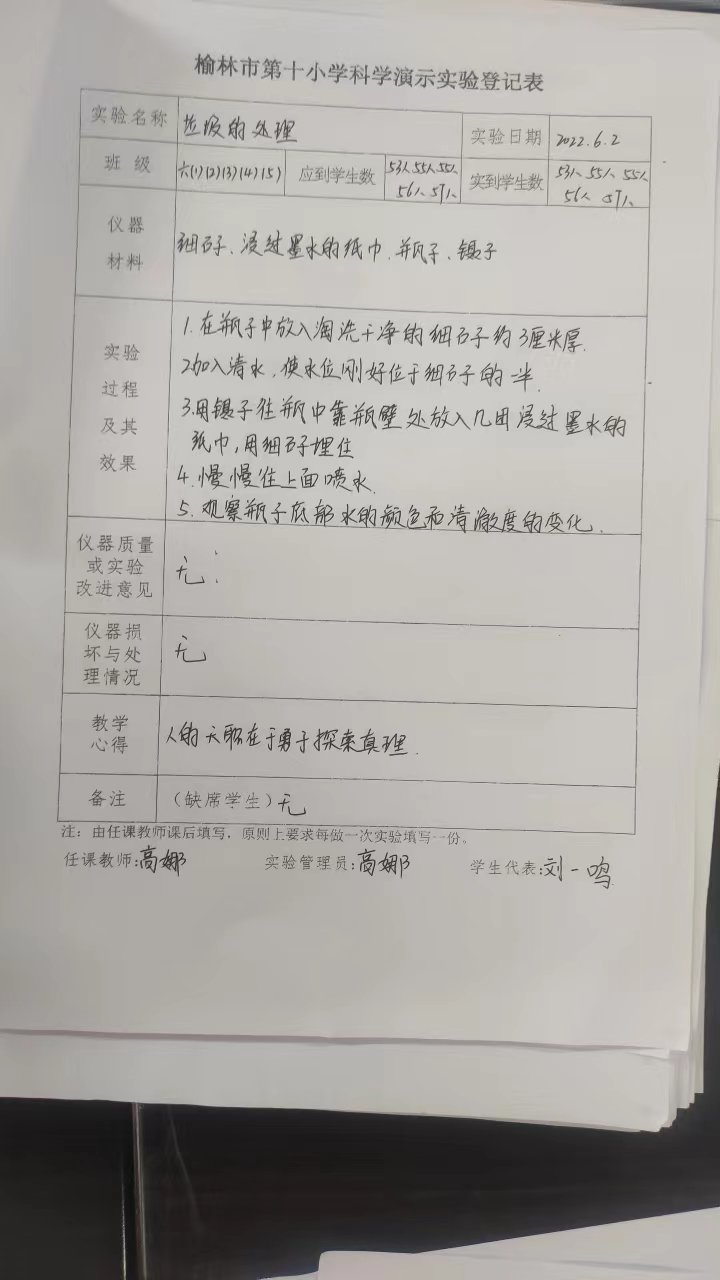 榆林市第十小学科学演示实验登记表
实验名称 垃圾的处理 实验日期 2022.6.2
班 级 六(1)(2)(3)(4)(5) 应到学生数 53人 55人 55人 56人 57人 实到学生数 53人 55人 55人 56人 57人
仪器材料 细石子、浸过墨水的纸巾、瓶子、镊子
实验过程及其效果
1.在瓶子中放入淘洗干净的细石子约3厘米厚.
2.加入清水,使水位刚好位于细石子的一半.
3.用镊子往瓶中靠瓶壁处放入几团浸过墨水的
纸巾,用细石子埋住
4.慢慢往上面喷水.
5.观察瓶子底部水的颜色和清澈度的变化.
仪器质量或实验改进意见 无
仪器损坏与处理情况 无
教学心得 人的天职在于勇于探索真理.
备注 (缺席学生) 无
注:由任课教师课后填写,原则上要求每做一次实验填写一份。
任课教师:高娜 实验管理员:高娜 学生代表:刘一鸣